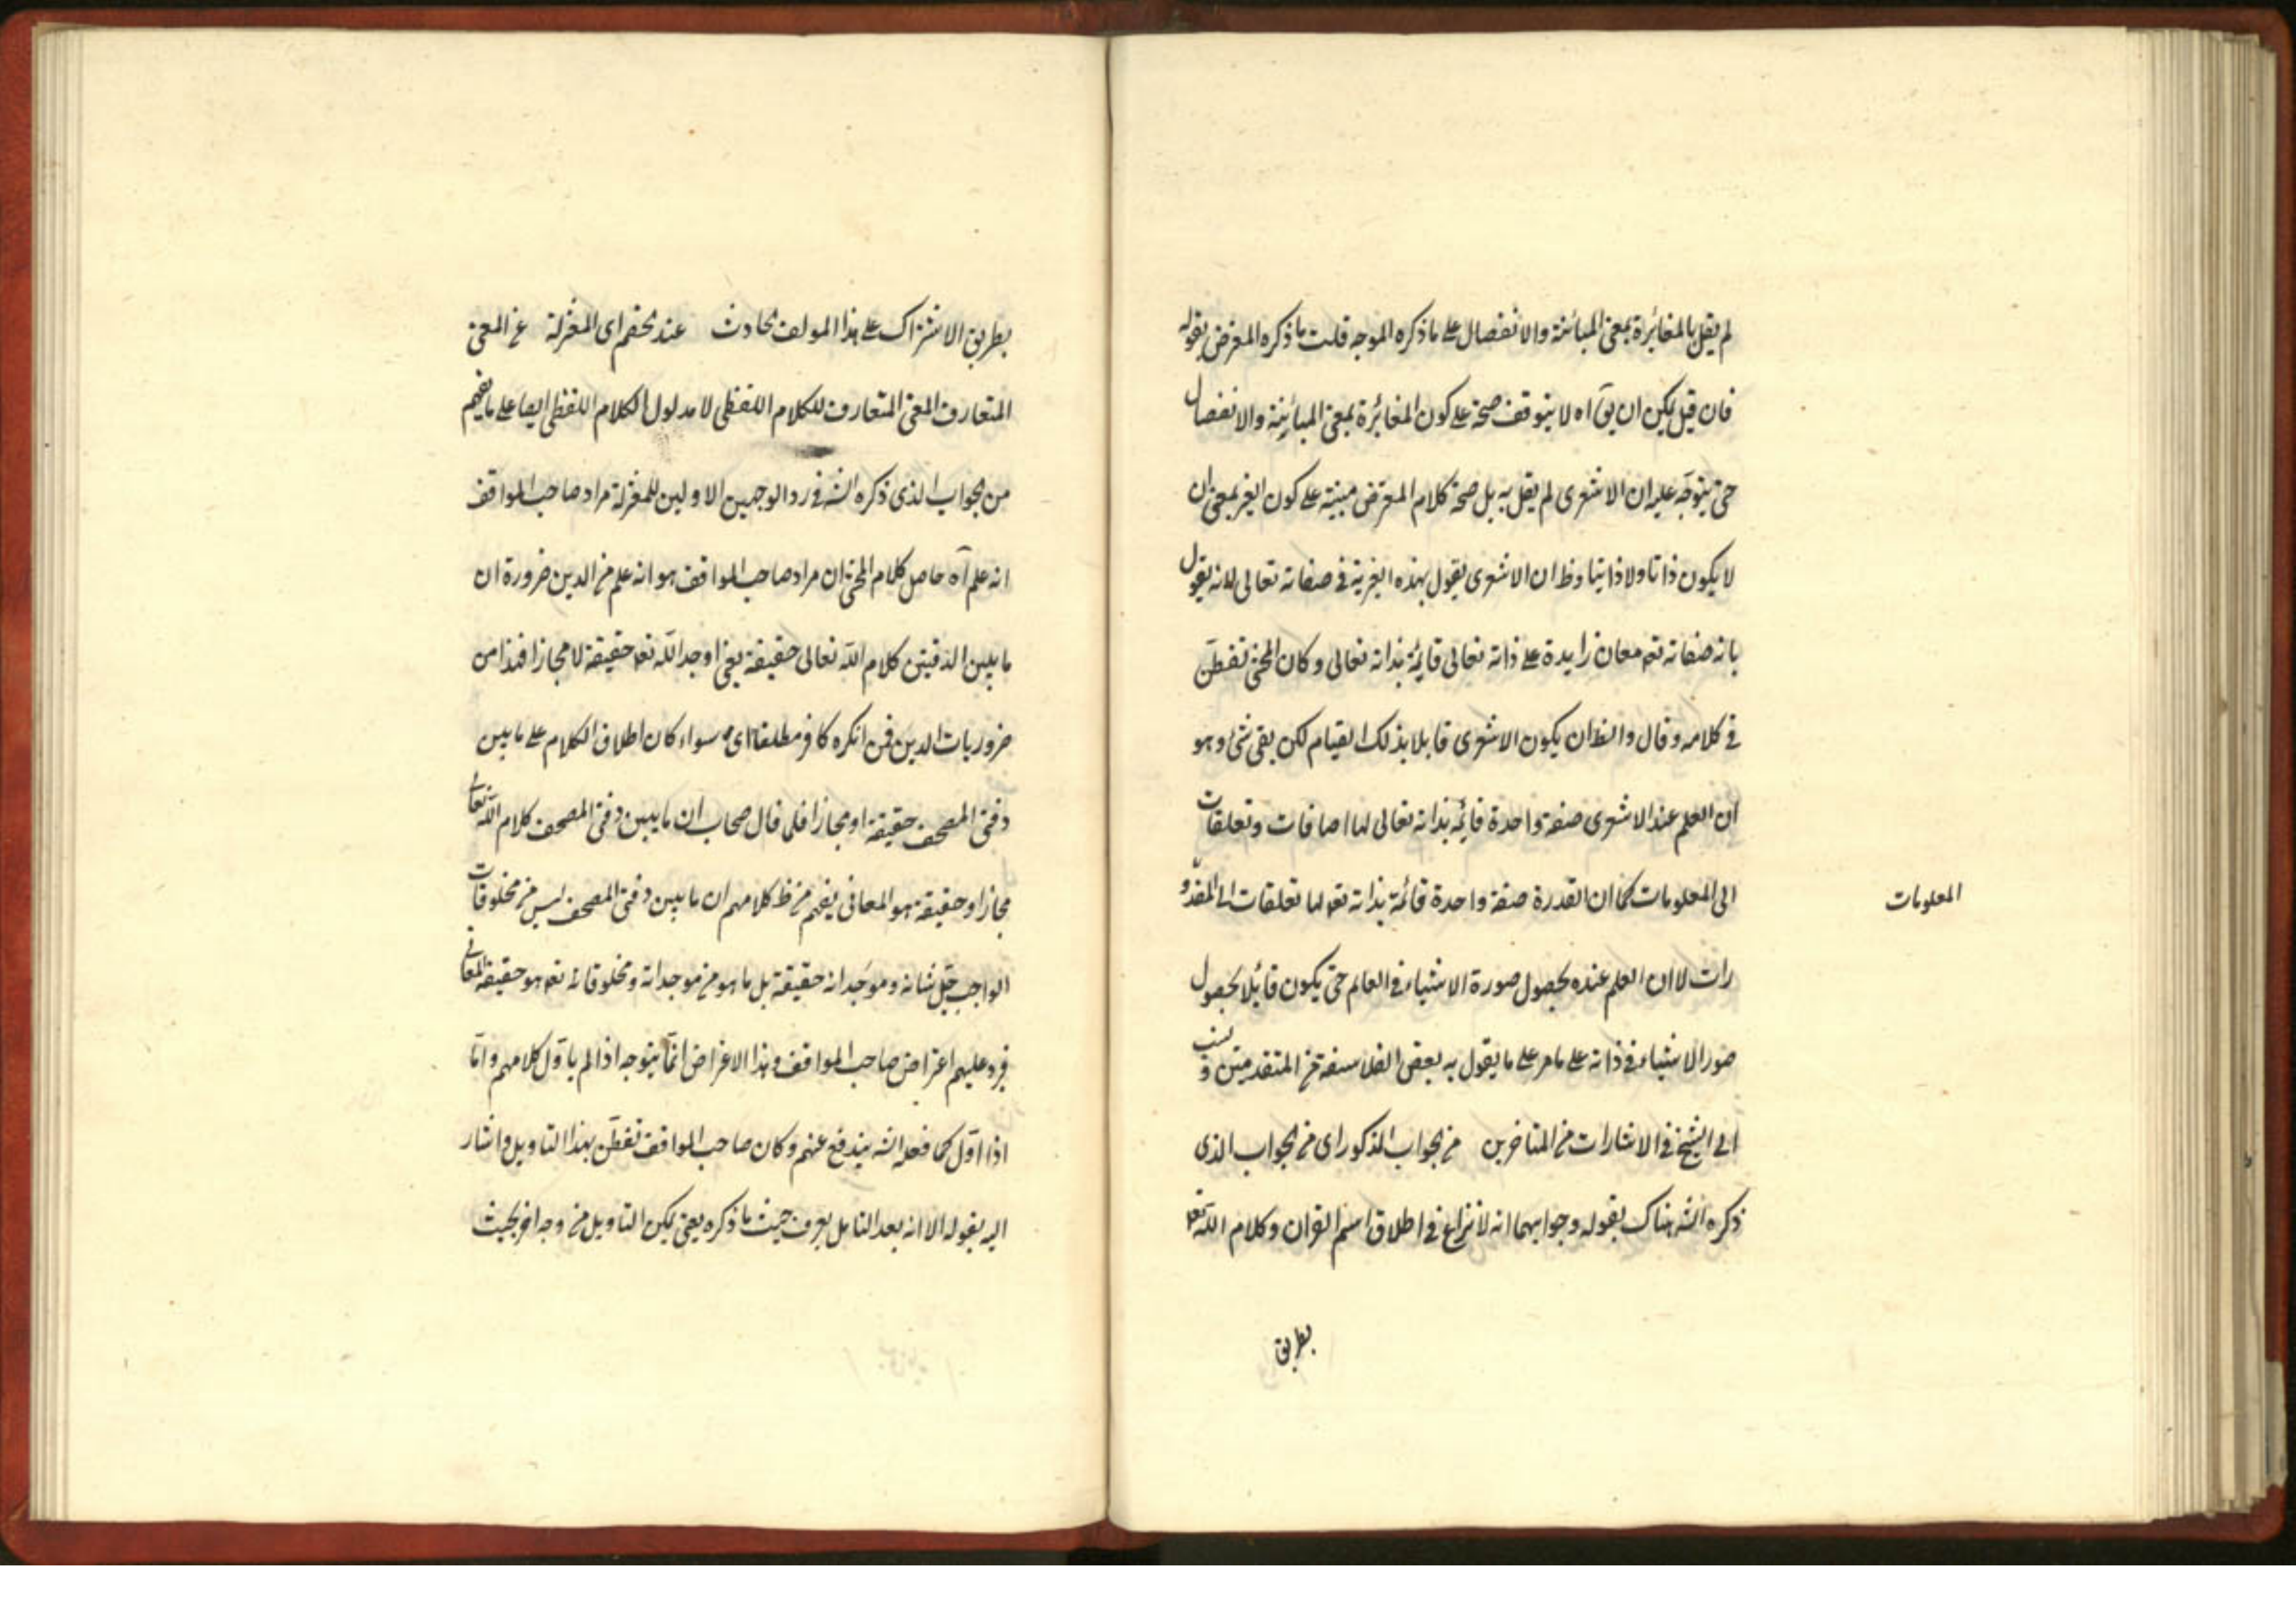 لم يقل بالمغائرة بمعنى المبائنة والانفصال على ما ذكره الموجه قلت ما ذكره المعترض بقوله
فان قيل يمكن ان يق آه لا يتوقف صحته على كون المغائرة بمعنى المبائنة والانفصال
حتى يتوجّه عليه ان الاشعرى لم يقل به بل صحة كلام المعترض مبنية على كون الغير بمعنى ان
لا يكون ذاتا ولا ذاتيا وظ ان الاشعرى يقول بهذه الغيرية فى صفاته تعالى لانه يقول
بانه صفاته تعه معان زايدة على ذاته تعالى قايمة بذاته تعالى وكان المحشى تفطّن
فى كلامه وقال والظ ان يكون الاشعرى قايلا بذلك القيام لكن بقى شئ وهو
ان العلم عند الاشعرى صفة واحدة قايمه بذاته تعالى لها اضافات وتعلقات
الى المعلومات كما ان القدرة صفة واحدة قائمة بذاته تعه لها تعلقات الى المقدو
المعلومات
رات لا ان العلم عنده بحصول صورة الاشياء فى العالم حتى يكون قائلا بحصول
صور الاشياء فى ذاته على ما مر على ما يقول به بعض الفلاسفة من المتقدمين و نسب
الى الشيخ فى الاشارات من المتاخرين من الجواب المذكور اى من الجواب الذى
ذكره الشه هناك بقوله وجوابهما انه لا نزاع فى اطلاق اسم القران وكلام الله تعه
بطريق
بطريق الاشتراك على هذا المولف الحادث عند الخصم اى المعتزلة عن المعنى
المتعارف المعنى المتعارف للكلام اللفظى لا مدلول الكلام اللفظى ايضا على ما يفهم
من الجواب الذى ذكره الشه فى رد الوجهين الاولين للمعتزلة مراد صاحب المواقف
انه علم آه حاصل كلام المحشى ان مراد صاحب المواقف هو انه علم من الدين ضرورة ان
ما بين الدفتين كلام الله تعالى حقيقة يعنى اوجد الله تعه حقيقة لا مجازا فهذا من
ضروريات الدين فمن انكره كافر مطلقا اى سواء كان اطلاق الكلام على ما بين
دفتى المصحف حقيقة او مجازا فلما قال صحاب ان ما بين دفتى المصحف كلام الله تعالى
مجازا وحقيقة هو المعانى يفهم من ظ كلامهم ان ما بين دفتى المصحف ليس من مخلوقات
الواجب جلّ شانه وموجَداته حقيقة بل ما هو من موجداته ومخلوقاته تعه هو حقيقة المعانى
فيرد عليهم اعتراض صاحب المواقف وهذا الاعتراض انمّا يتوجه اذا لم ياوّل كلامهم وامّا
اذا اوّل كما فعله الشه يندفع عنهم وكان صاحب المواقف تفطّن بهذا التاويل واشار
اليه بقوله الا انه بعد التامل يعرف حيث ما ذكره يعنى يمكن التاويل من وجه اخر بحيث